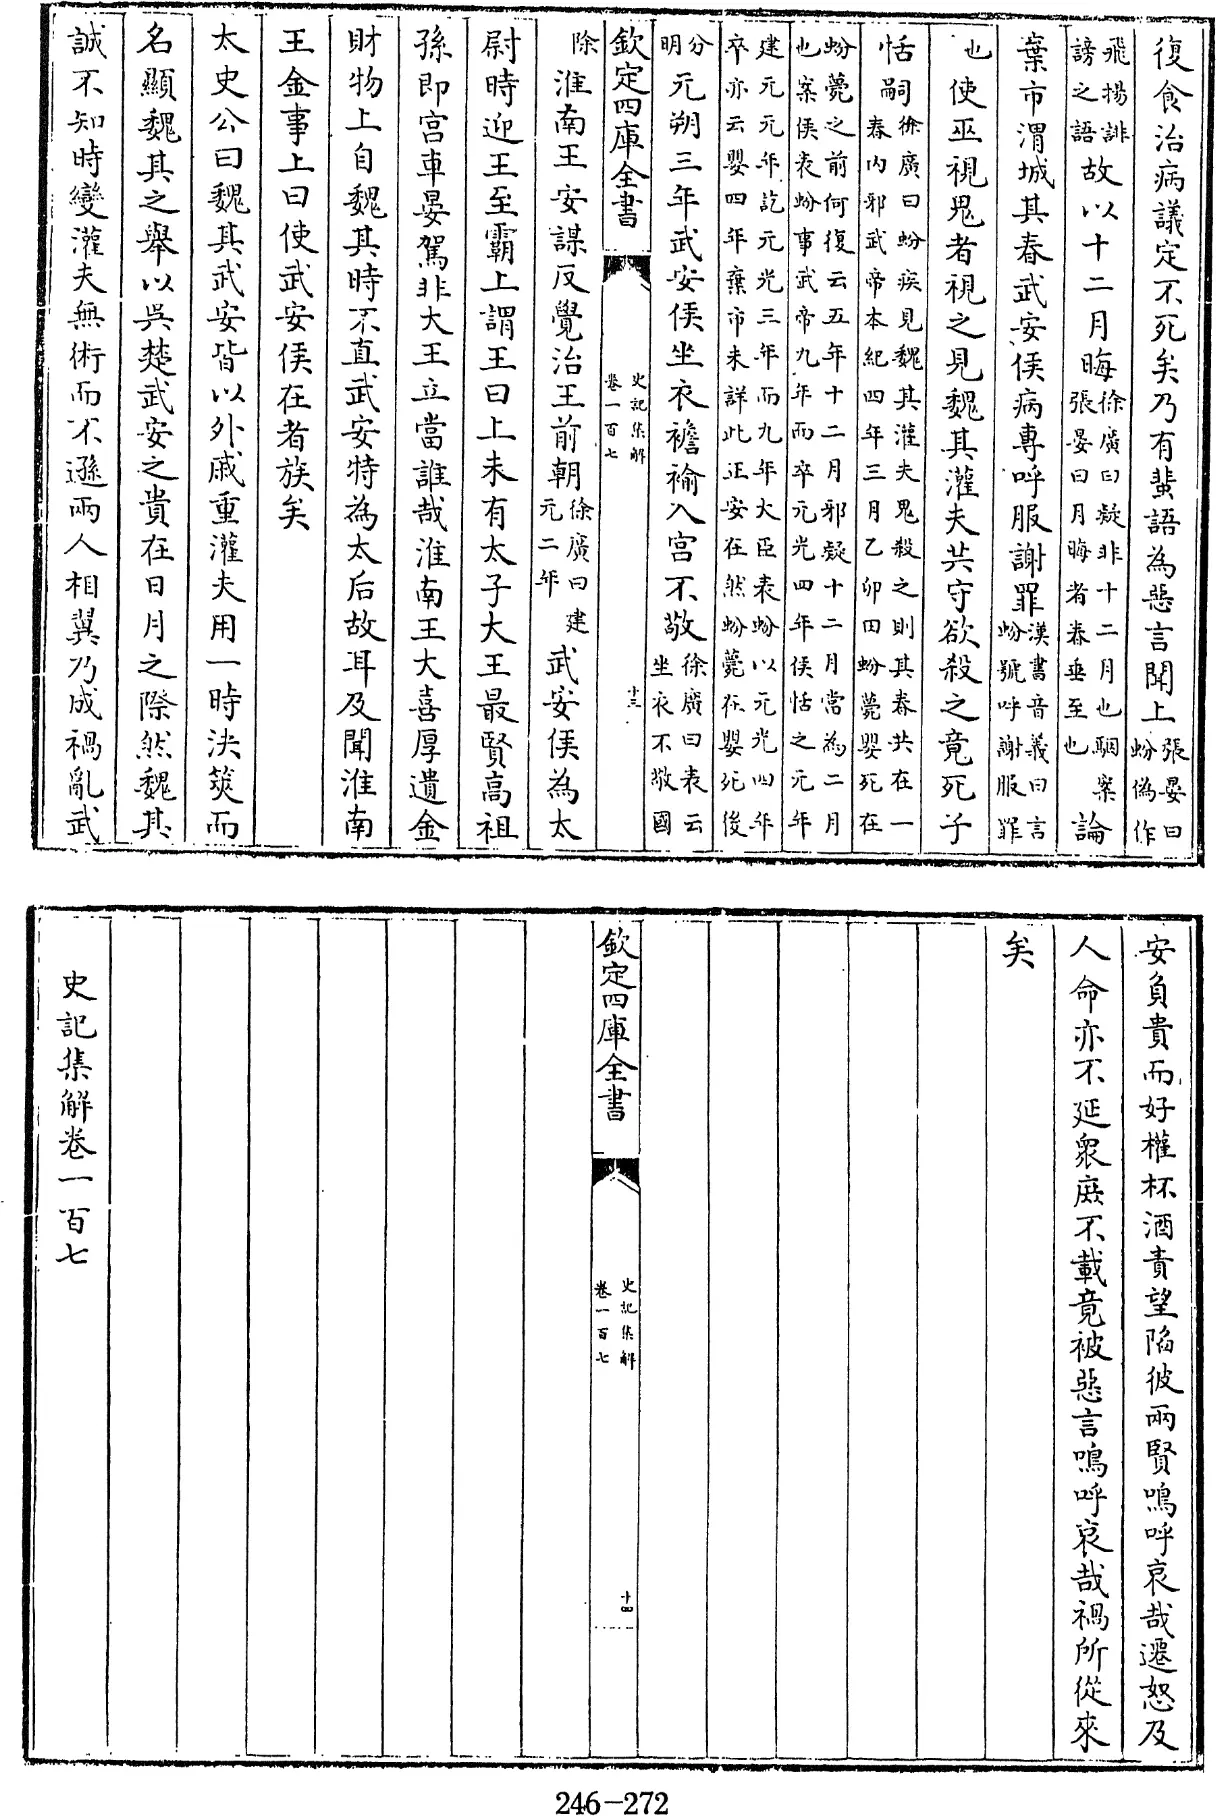 復食治病議定不死矣乃有蜚語為惡言聞上張晏曰蚡偽作
飛揚誹謗之語故以十二月晦徐廣曰疑非十二月也駰案張晏曰月晦者春垂至也論
棄市渭城其春武安侯病專呼服謝罪漢書音義曰言蚡號呼謝服罪
也使巫視鬼者視之見魏其灌夫共守欲殺之竟死子
恬嗣徐廣曰蚡疾見魏其灌夫鬼殺之則其春共在一春內邪武帝本紀四年三月乙卯田蚡薨嬰死在
蚡薨之前何復云五年十二月邪疑十二月當為二月也案侯表蚡事武帝九年而卒元光四年侯恬之元年
建元元年訖元光三年而九年大臣表蚡以元光四年卒亦云嬰四年棄市未詳此正安在然蚡薨在嬰死後
分明元朔三年武安侯坐衣襜褕入宮不敬徐廣曰表云坐衣不敬國
欽定四庫全書 史記集解卷一百七 十三
除淮南王安謀反覺治王前朝徐廣曰建元二年武安侯為太
尉時迎王至霸上謂王曰上未有太子大王最賢高祖
孫即宮車晏駕非大王立當誰哉淮南王大喜厚遺金
財物上自魏其時不直武安特為太后故耳及聞淮南
王金事上曰使武安侯在者族矣
太史公曰魏其武安皆以外戚重灌夫用一時決筴而
名顯魏其之舉以吳楚武安之貴在日月之際然魏其
誠不知時變灌夫無術而不遜兩人相翼乃成禍亂武
安負貴而好權杯酒責望陷彼兩賢嗚呼哀哉遷怒及
人命亦不延衆庶不載竟被惡言嗚呼哀哉禍所從來
矣
欽定四庫全書 史記集解卷一百七 十四
史記集解卷一百七
246-272